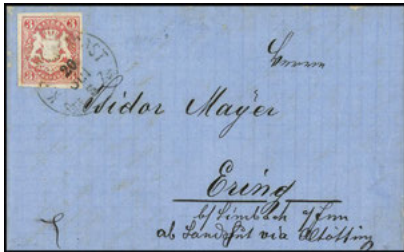 3 3
POST
20
Herrn
Isidor Mayer
Ering
b/ Simbach a/Inn
ab Landshut via Altötting